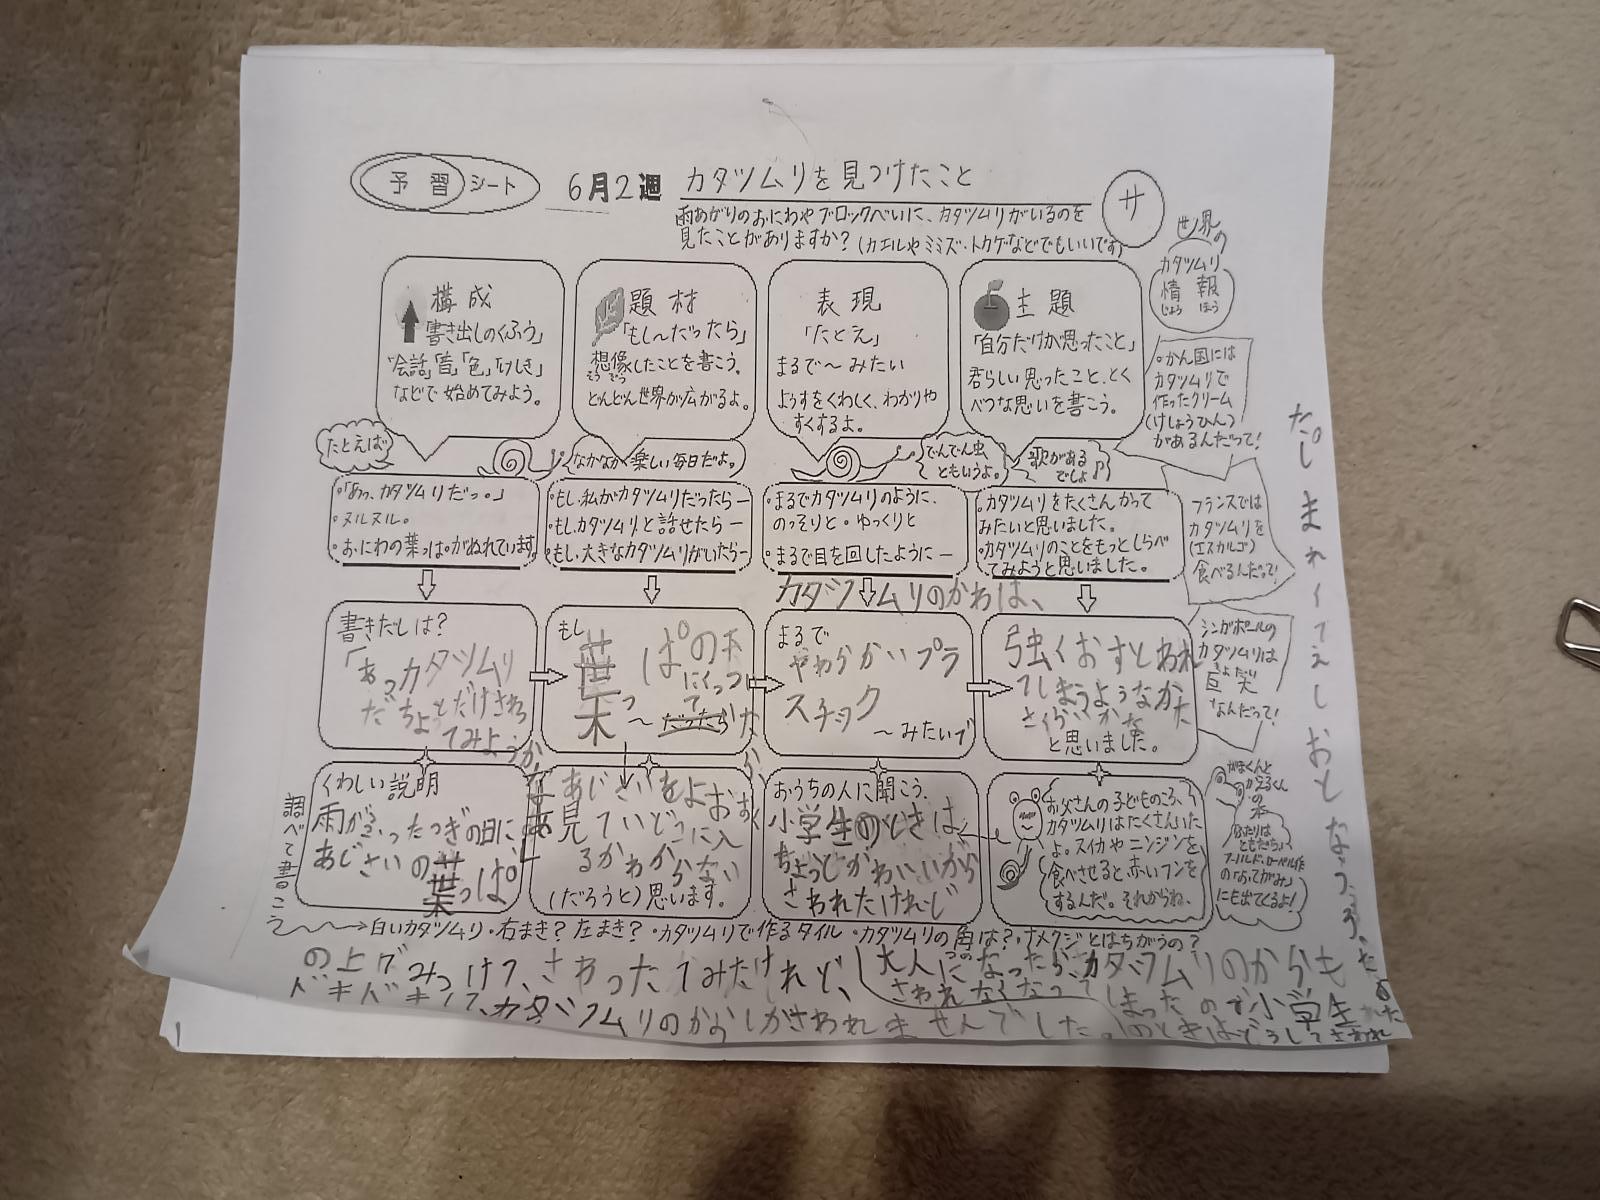 予習シート
6月2週 カタツムリを見つけたこと
サ
雨あがりのおにわやブロックべいに、カタツムリがいるのを
見たことがありますか?(カエルやミミズ・トカゲなどでもいいです)
構成
「書き出しのくふう」
"会話」「音」「色」「けしき」
などで始めてみよう。
題材
「もし〜だったら」
想像したことを書こう。
そうぞう
どんどん世界が広がるよ。
表現
「たとえ」
まるで〜みたい
ようすをくわしく、わかりや
すくするよ。
主題
「自分だけが思ったこと」
君らしい思ったこと、とく
べつな思いを書こう。
世界の
カタツムリ
情報
じょうほう
・かん国には
カタツムリで
作ったクリーム
(けしょうひん)
があるんだって!
たとえば
なかなか楽しい毎日だよ。
でんでん虫
ともいうよ。
歌がある
でしょ♪
・「あっ、カタツムリだっ。」
・ヌルヌル。
・おにわの葉っぱがぬれています
・もし、私がカタツムリだったら―
・もし、カタツムリと話せたら―
・もし、大きなカタツムリがいたら―
・まるでカタツムリのように、
のっそりと。ゆっくりと
・まるで目を回したように―
・カタツムリをたくさんかって
みたいと思いました。
・カタツムリのことをもっとしらべ
てみようと思いました。
フランスでは
カタツムリを
(エスカルゴ)
食べるんだって!
書きだしは?
「あっ、カタツムリ
だ ちょっとだけさわっ
てみようか
もし
葉っぱの
木
にくっつい
て
〜だったら
カタツムリのからは、
まるで
やわらかいプラ
スチック
〜みたいで
強くおすとわれ
てしまうようなかた
さくらいかな
と思いました。
シンガポールの
カタツムリは
きょだい
巨大
なんだって!
くわしい説明
雨がふったつぎの日に、
あじさいの葉っぱ
あじさいをよおおく
見ていどこに入
るかわからない
(だろうと)思います。
おうちの人に聞こう。
小学生のときは、
ちょっとかわいいから
さわれたけれど
お父さんの子どものころ、
カタツムリはたくさんいた
よ。スイカやニンジンを
食べさせると赤いフンを
するんだ。それからね、
がまくんと
かえるくん
の本
ふたりは
ともだち」
アーノルド・ローベル作
の「おてがみ」
にも出てくるよ!
調べて書こう
→白いカタツムリ・右まき?左まき?・カタツムリで作るタイル・カタツムリの角は?・ナメクジとはちがうの?
つの
の上でみつけて、さわってみたけれど、
ドキドキして、カタツムリのからしかさわれませんでした。
大人になったらカタツムリのからも
さわれなくなってしまったので小学生
のときはどうしてさわれ